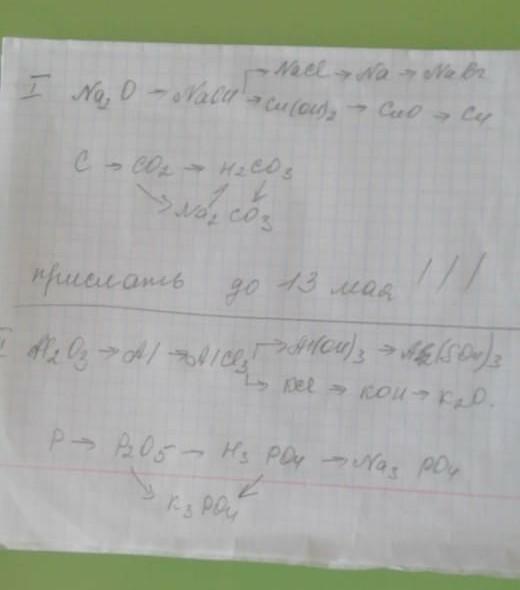 → NaCl → Na → NaBr
I Na₂O → NaOH → Cu(OH)₂ → CuO → Cu
C → CO₂ → H₂CO₃
Na₂CO₃
прислать до 13 мая !!!
Al₂O₃ → Al → AlCl₃ → Al(OH)₃ → Al₂(SO₄)₃
→ KCl → KOH → K₂O.
P → P₂O₅ → H₃PO₄ → Na₃PO₄
K₃PO₄